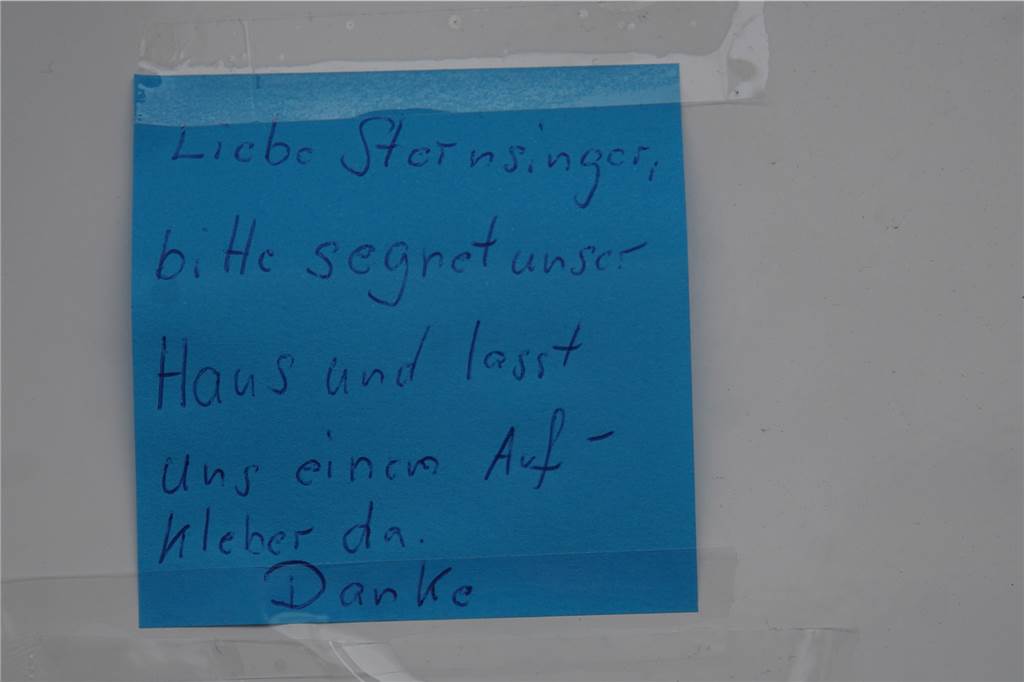 Liebe Sternsinger,
bitte segnet unser
Haus und lasst
uns einen Auf-
kleber da.
Danke